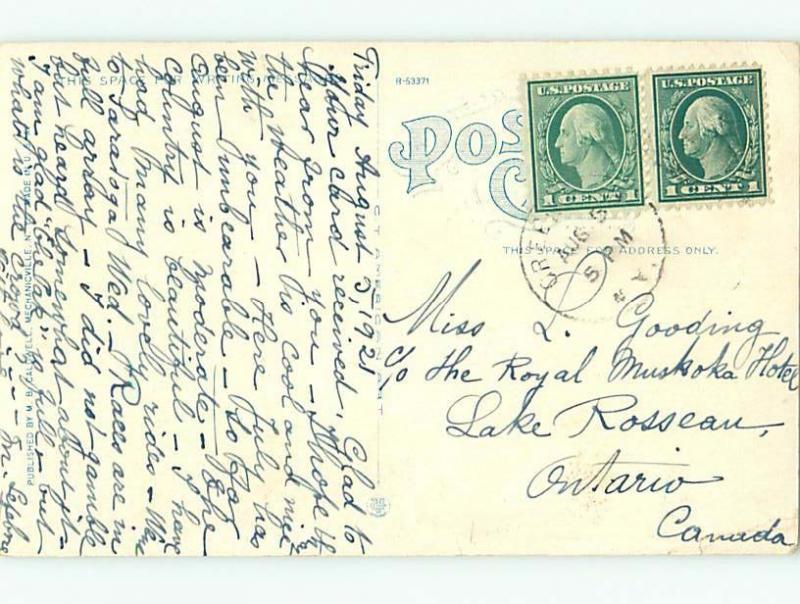 THIS SPACE FOR WRITING MESSAGES
R-53371
POS
C
U.S. POSTAGE
1 CENT 1
U.S. POSTAGE
1 CENT 1
AUG 5
5 PM
THIS SPACE FOR ADDRESS ONLY.
Friday August 5, 1921
Your card received. Glad to
hear from you - I hope
the weather is cool and nice
with you - Here July has
been unbearable - So far
August is moderate - The
Country is beautiful - I have
had many lovely rides - We
to Saratoga Wed. - Races are in
full array - I did not gamble
but heard somewhat about it -
I am glad is full - but
what is the
Miss L. Gooding
c/o The Royal Muskoka Hotel
Lake Rosseau,
Ontario
Canada
PUBLISHED BY M. B. CALDWELL, MECHANICVILLE, N.